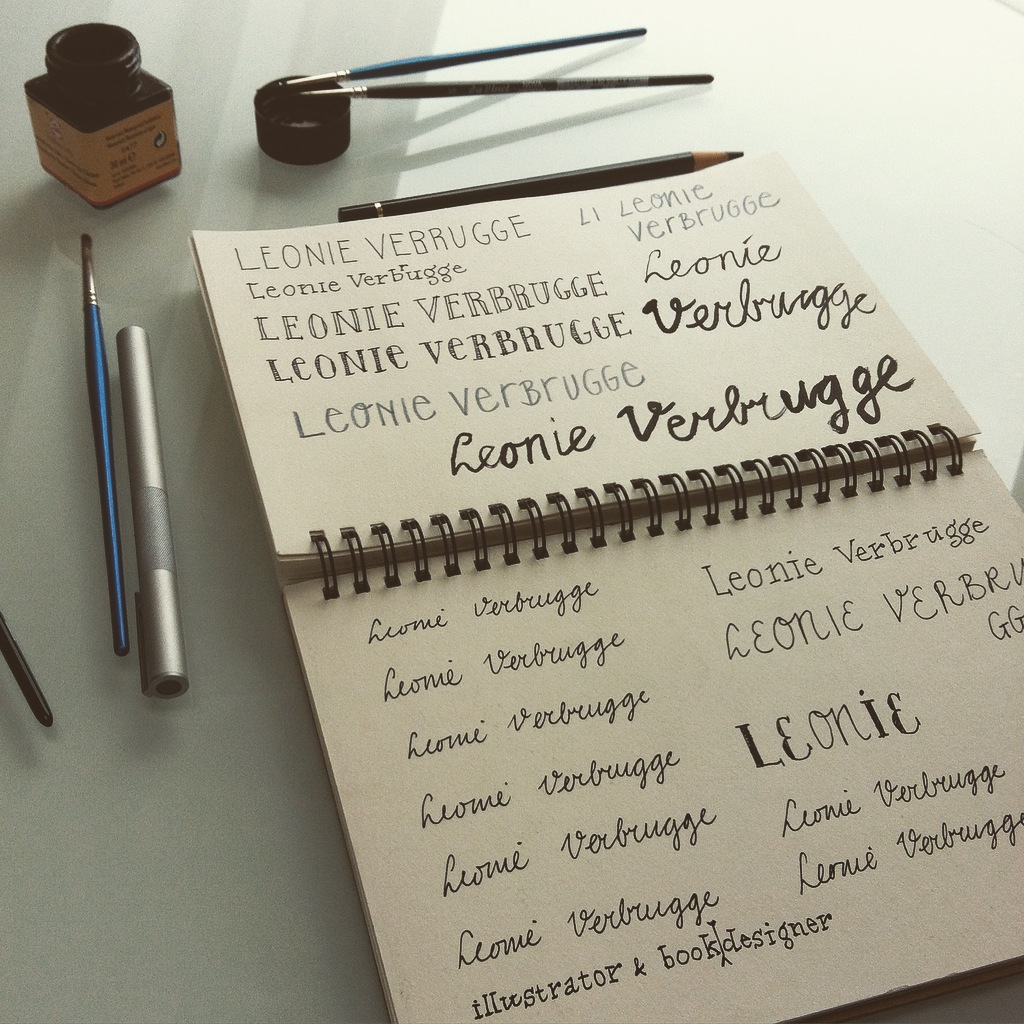 LEONIE VERRUGGE
Leonie Verbrugge
LEONIE VERBRUGGE
LEONIE VERBRUGGE
LEONIE VERBRUGGE
LI Leonie
VERBRUGGE
Leonie
Verbrugge
Leonie Verbrugge
Leonie Verbrugge
Leonie Verbrugge
Leonie Verbrugge
Leonie Verbrugge
Leonie Verbrugge
Leonie Verbrugge
illustrator & book designer
Leonie Verbrugge
LEONIE VERBRU
GG
LEONIE
Leonie Verbrugge
Leonie Verbrugge
30 ml e